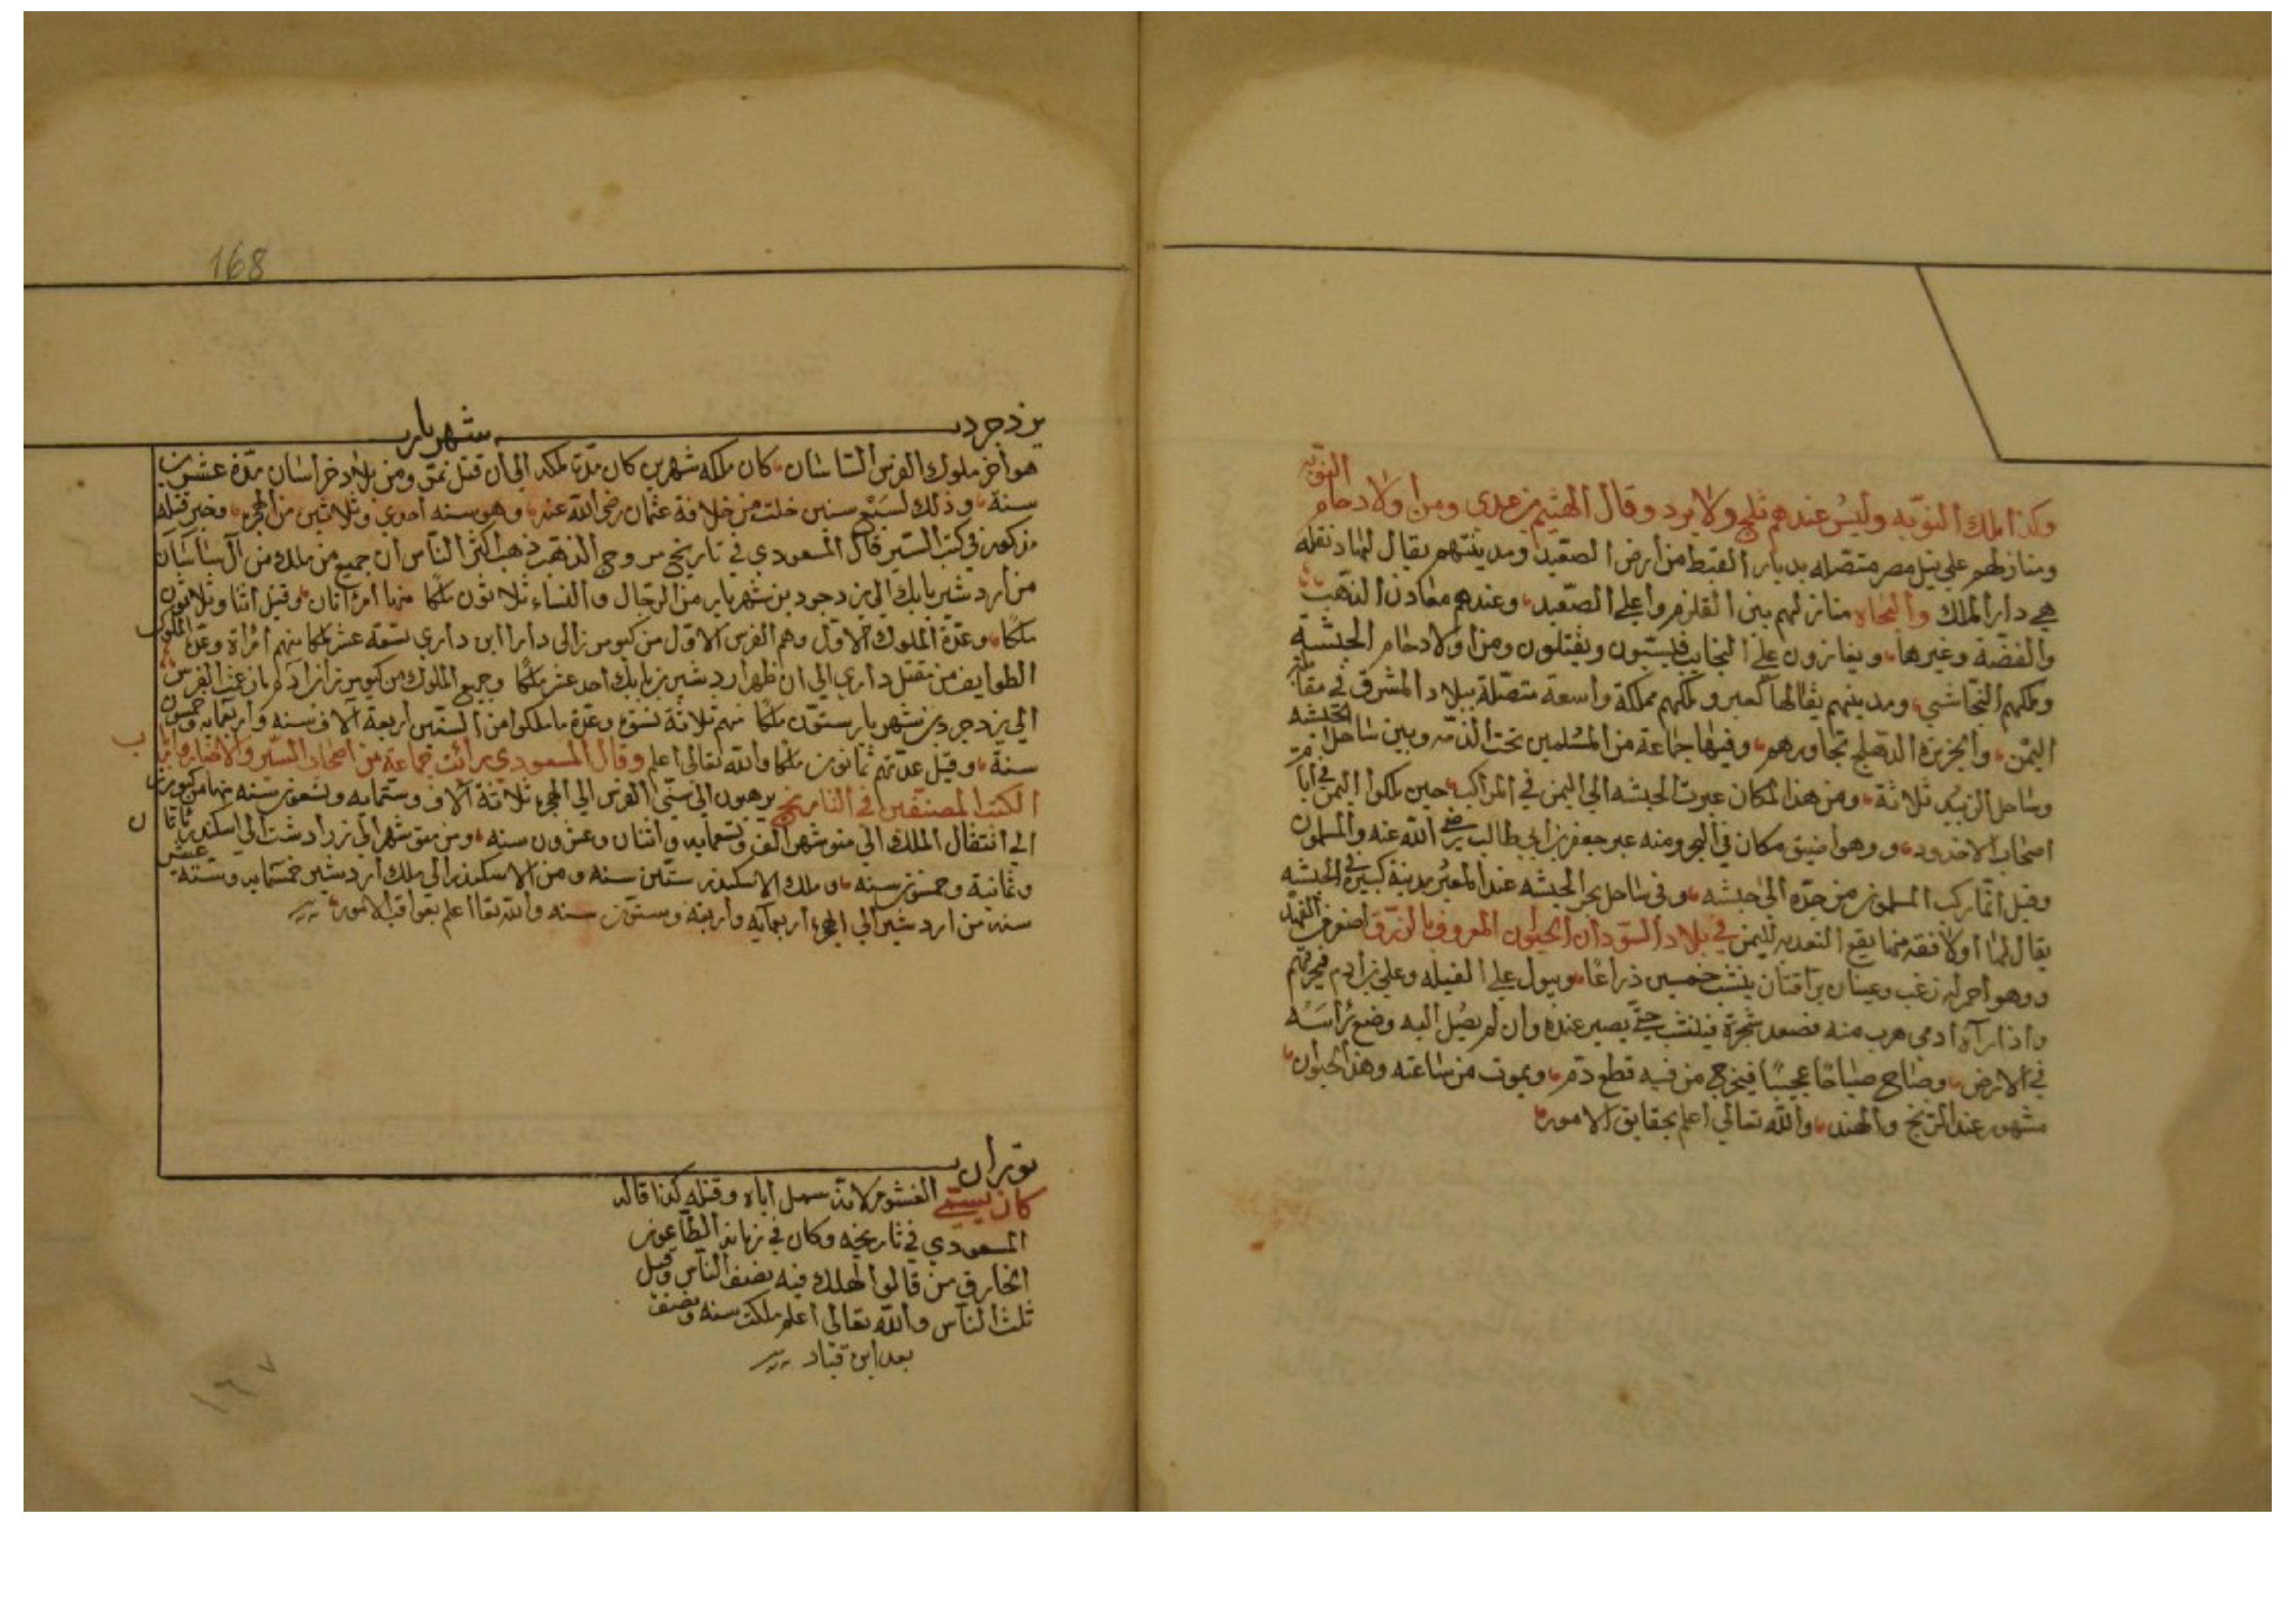 النوبة
وكذا ملك النوبه وليس عندهم ثلج ولا برد وقال الهيثم بن عدى ومن اولاد حام
ومنازلهم على نيل مصر متصله بديار القبط من أرض الصعيد ومدينتهم يقال لها دنقله
هي دار الملك والبجاه منازلهم بين القلزم واعلى الصعيد وعندهم معادن الذهب
والفضة وغيرها ويغازون على النجايب فيسبون ويقتلون ومن اولاد حام الحبشة
وملكهم النجاشي ومدينتهم يقال لها كعبر وملكهم مملكة واسعة متصلة ببلاد المشرق في مقابلة
اليمن والجزيرة الدهلج تجاورهم وفيها جماعة من المسلمين تحت الذمه وبين ساحل الحبشه
وساحل الزبيد ثلاثة ومن هذا المكان عبرت الحبشه الى اليمن في المراكب حين ملكوا اليمن في أيام
اصحاب الاخدود وهو اضيق مكان في البحر ومنه عبر جعفر بن ابي طالب رضي الله عنه والمسلمون
وقيل انما ركب المسلمون من جده الى حبشه وفى ساحل بحر الحبشه عند المعبر مدينة كبيرة في الحبشه
يقال لها اولافقه منها يقع التعديه لليمن في بلاد السودان الحيوان المعروف بالزرق اصغر من الفهد
وهو احمر له زغب وعينان براقتان يثب خمسين ذراعا ويبول على الفيله وعلى بن ادم فيحرقهم
واذا رآه ادمى هرب منه فصعد شجرة فيثب حتى يصير عنده وان لم يصل اليه وضع رأسه
في الارض وصاح صياحا عجيبا فيخرج من فيه قطع دم ويموت من ساعته وهذا الحيوان
مشهور عند الزنج والهند والله تعالى اعلم بحقايق الامور
168
يزدجرد بن شهريار
هو أخر ملوك الفرس الساسان كان ملكه شهرين كان مدة ملكه الى أن قتل بمرو من بلاد خراسان مدة عشرين
سنة وذلك لسبع سنين خلت من خلافة عثمان رضي الله عنه وهو سنه أحدي وثلاثين من الهجرة وخبر قتله
مذكور في كتب السير قال المسعودي في تاريخ مروج الذهب ذهب اكثر الناس أن جميع من ملك من آل ساسان
من أردشير بابك الى يزدجرد بن شهريار من الرجال والنساء ثلاثون ملكا منها امرأتان وقيل اثنا وثلاثون
ملكا وعدة الملوك الاول وهم الفرس الاول من كيومرز الى دارا ابن داري تسعة عشر ملكا منهم امراة وعدة الملوك
الطوايف من مقتل داري الى ان ظهر أردشير بن بابك أحد عشر ملكا وجميع الملوك من كيومرز بن آدم بازعم الفرس
الى يزدجرد بن شهريار ستون ملكا منهم ثلاثة نسوة وعدة ما ملكوا من السنين أربعة آلاف سنه وأربعمايه وخمسون
سنة وقيل عدتهم ثمانون ملكا والله تعالى اعلم وقال المسعودي رائت جماعة من اصحاب السير والاخبار وارباب
الكتب المصنفين في التاريخ يذهبون الى سني الفرس الى الهجرة ثلاثة آلاف وستمايه وتسعون سنه منها من كيومرز
الى انتقال الملك الى منوشهر ألف وتسعمايه واثنان وعشرون سنه ومن منوشهر الى زرادشت الى اسكندر
وثمانية وخمسون سنه وملك الاسكندر ستين سنه ومن الاسكندر الى ملك أردشير خمسمايه وسته عشر
سنه من اردشير الى الهجرة أربعمايه واربعة وستون سنه والله تعا اعلم بعواقب الامور
توران
كان يسمى الغشوم لانه سمل اباه وقتله كذا قاله
المسعودي في تاريخه وكان في زمانه الطاعون
الخارق من قالوا هلك فيه نصف الناس وقيل
ثلث الناس والله تعالى اعلم ملكت سنه ونصف
بعد ابن قباد
١٦٧